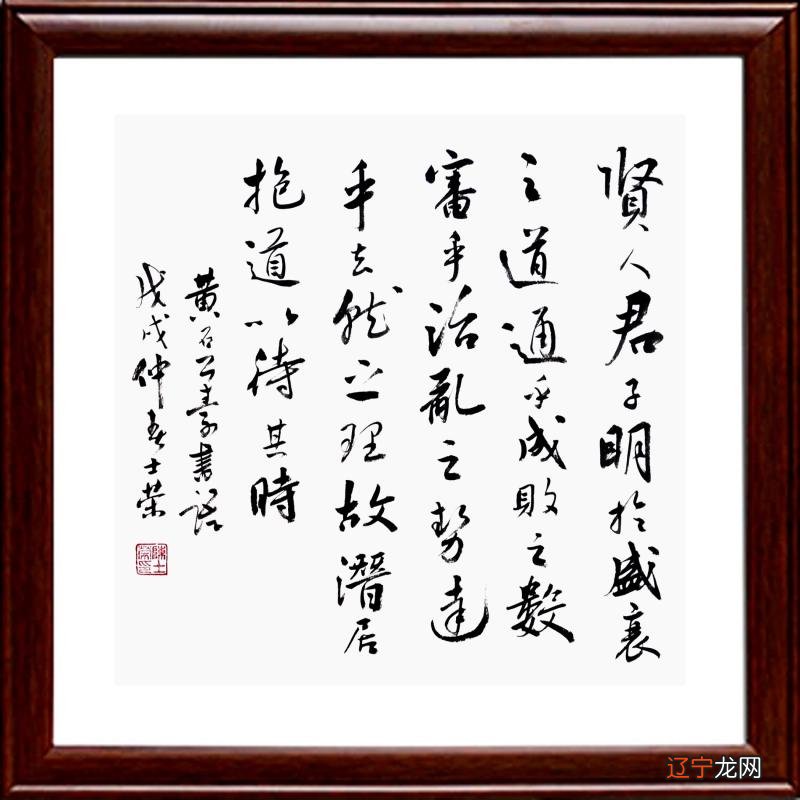 賢人君子明於盛衰
之道通乎成敗之數
審乎治亂之勢達
乎去就之理故潛居
抱道以待其時
黃石公素書語
戊戌仲春士榮
陳士榮印
辽宁龙网